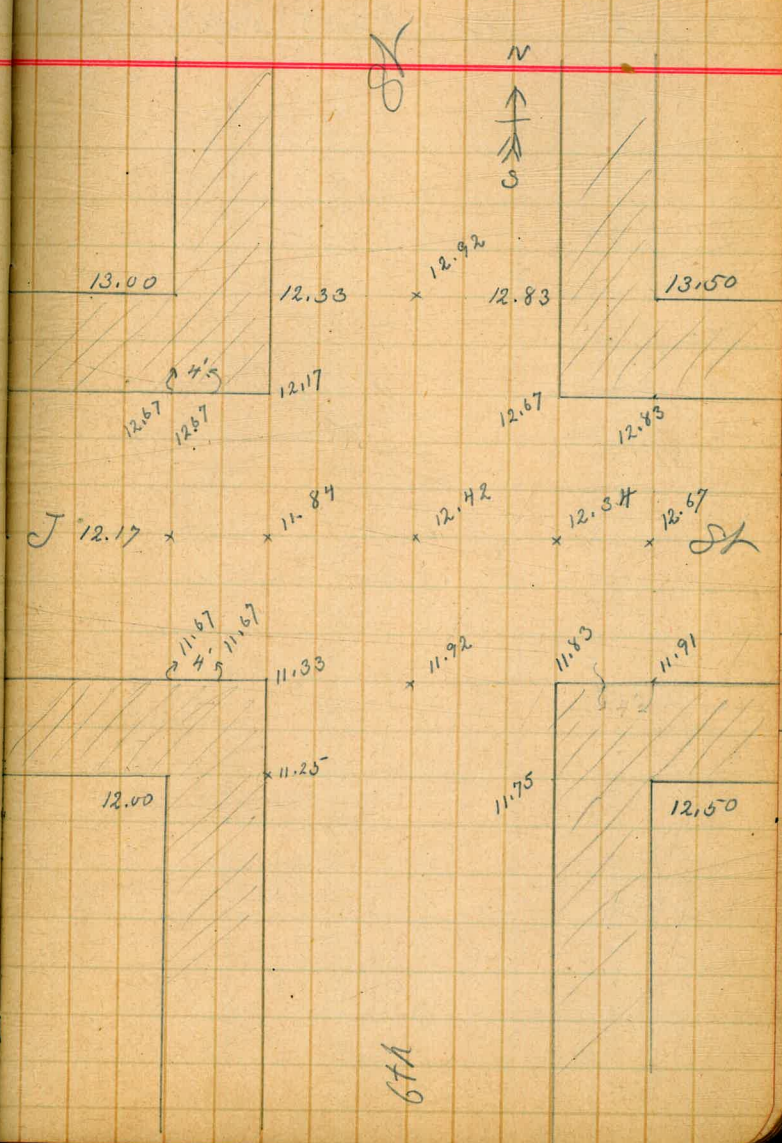 St
N
S
12.92
13.00
12.33
12.83
13.50
4'
12.17
12.67
12.67
12.67
12.83
J
12.17
11.84
12.42
12.34
12.67
St
11.67
11.67
4'
11.33
11.92
11.83
11.91
11.25
12.00
11.75
12.50
6th